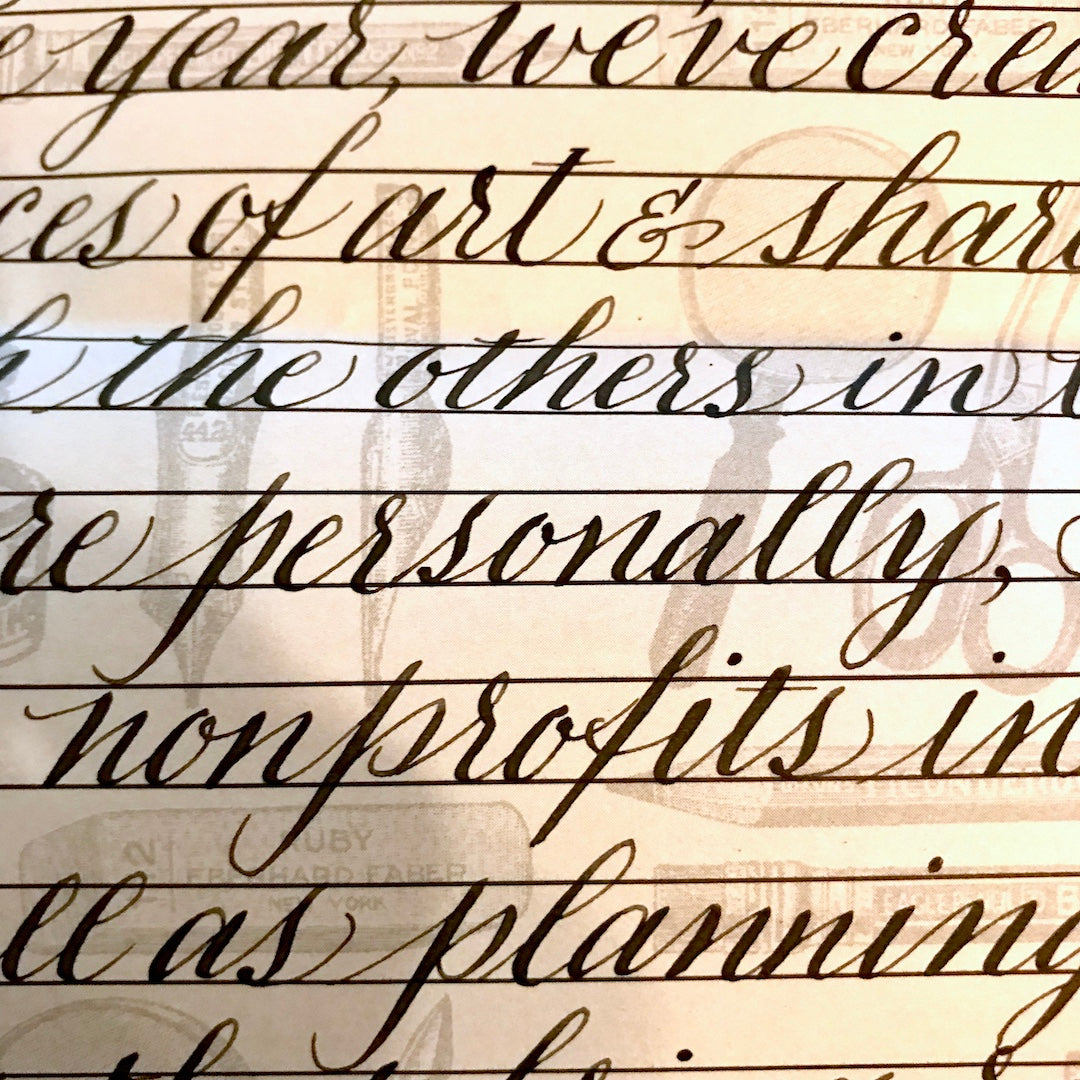 e year, we've crea
ces of art & shar
h the others in t
re personally,
nonprofits in
ll as planning
EBERHARD FABER
NEW YORK
TICONDERO
RUBY
EBERHARD FABER
NEW YORK